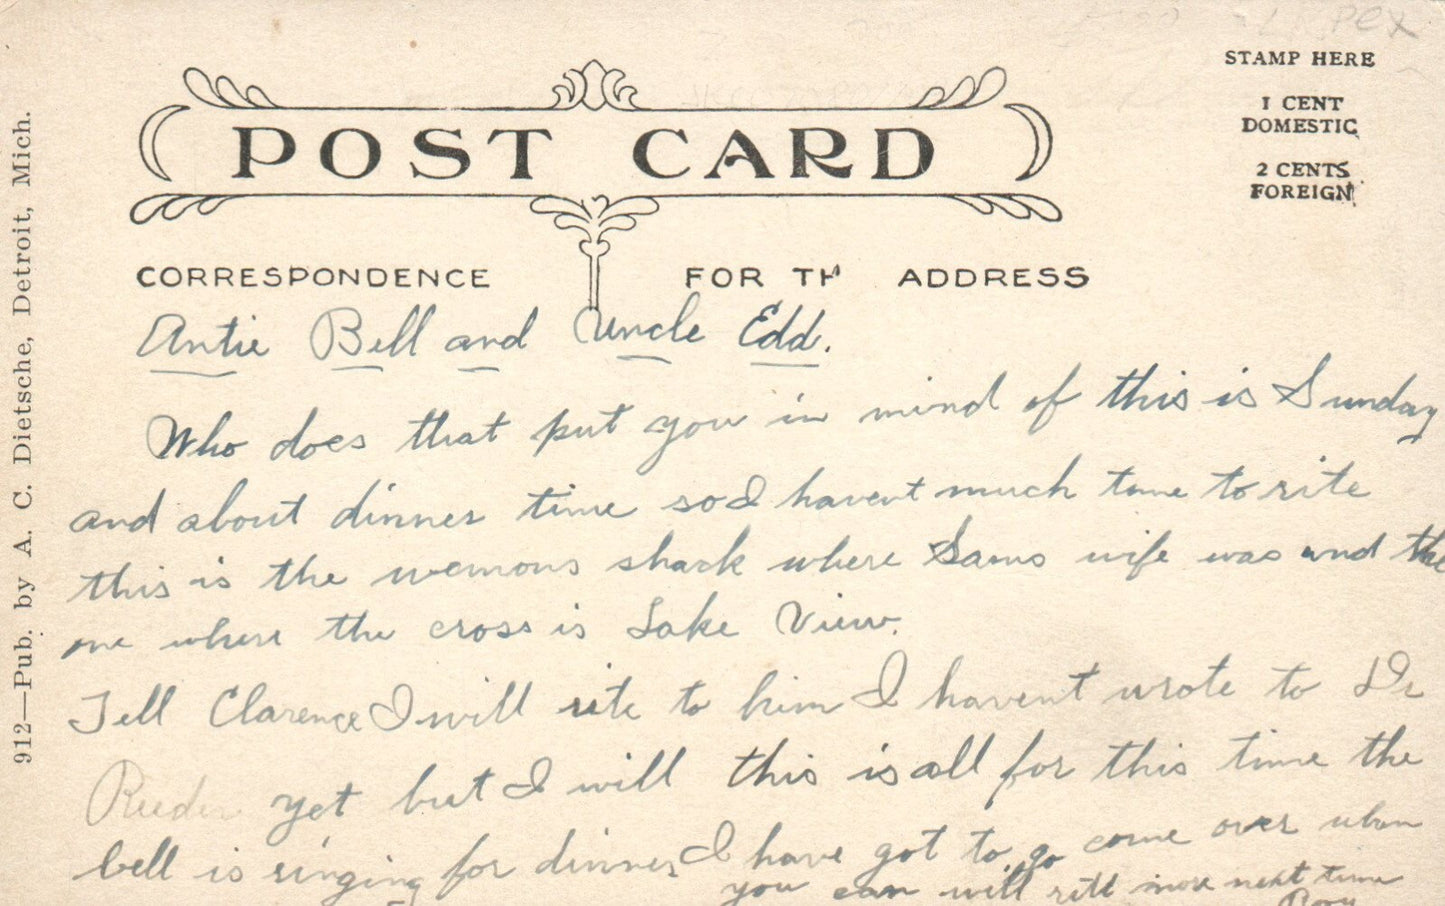 STAMP HERE
1 CENT
DOMESTIC
2 CENTS
FOREIGN
POST CARD
CORRESPONDENCE FOR TH ADDRESS
912—Pub. by A. C. Dietsche, Detroit, Mich.
Antie Bell and Uncle Edd.
Who does that put you in mind of this is Sunday
and about dinner time so I havent much time to rite
this is the wemons shack where Sams wife was and the
one where the cross is Lake View.
Tell Clarence I will rite to him I havent wrote to Dr
Reeder yet but I will this is all for this time the
bell is singing for dinner I have got to go come over when
you can will rite more next time